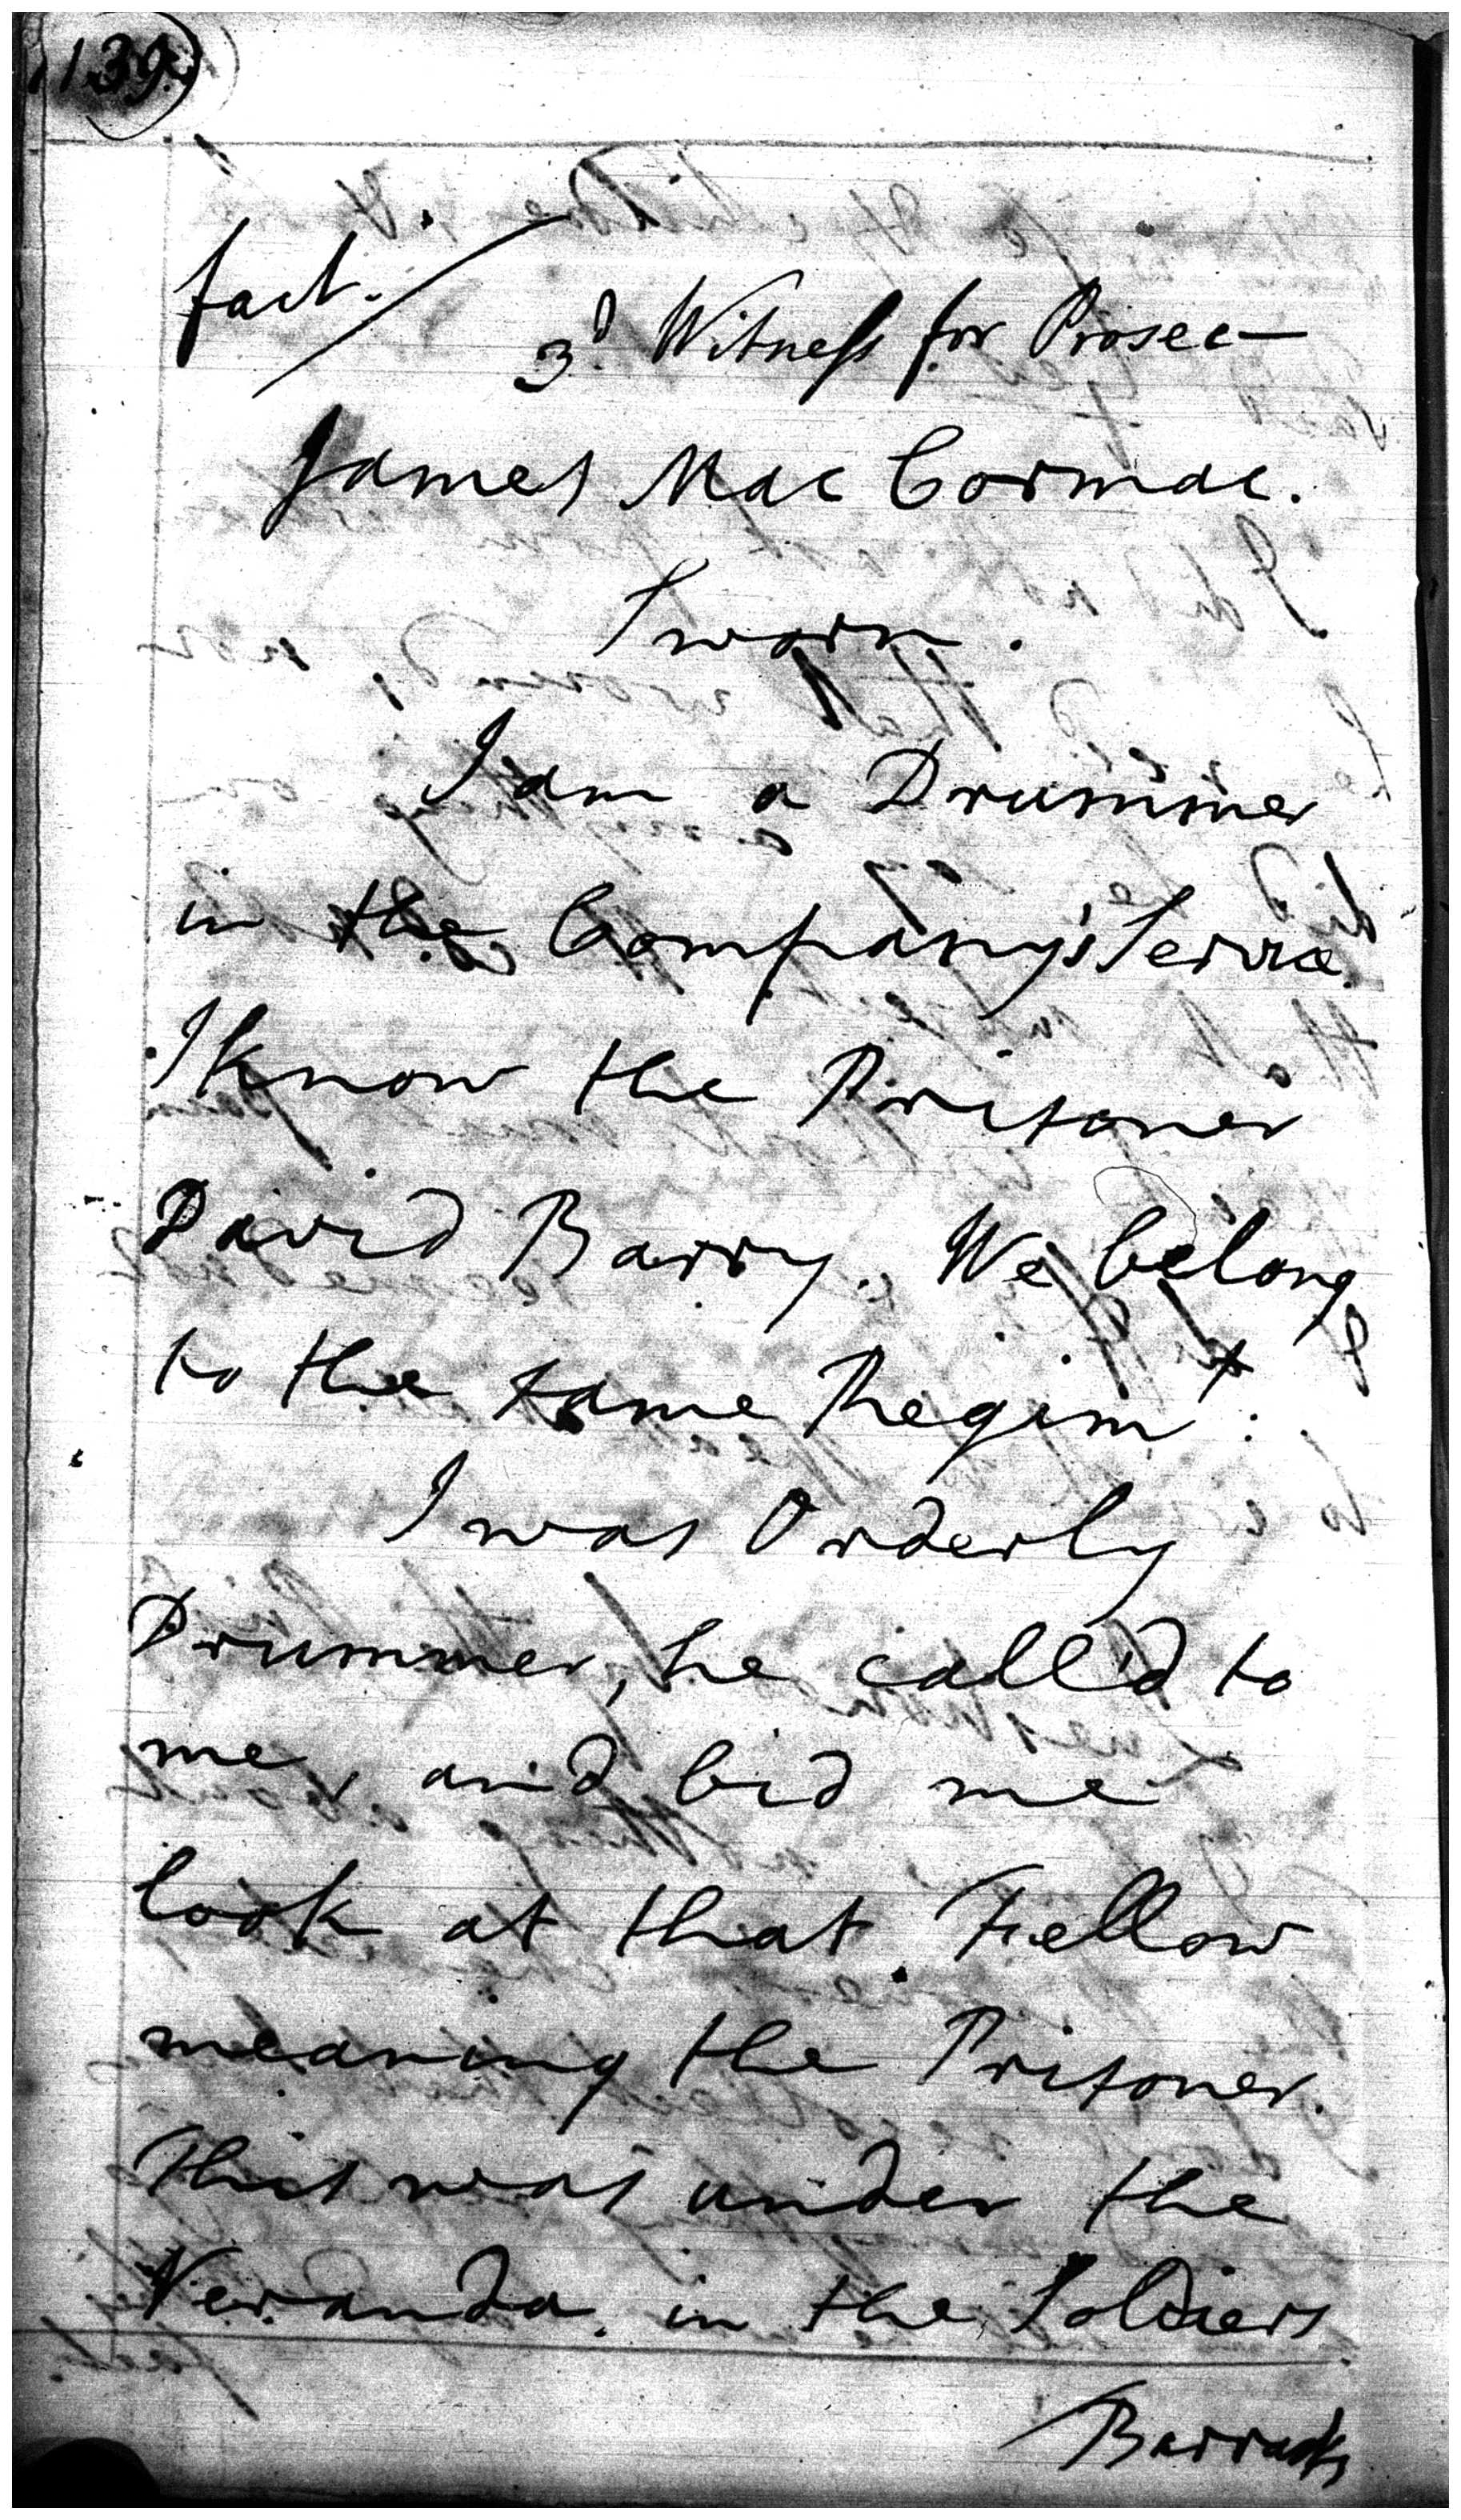 139.
fact.
3d. Witness for Prosec—
James Mac Cormac.
Sworn.
I am a Drummer
in the Company's Service
I know the Prisoner
David Barry. We belong
to the same Regimt:
I was Orderly
Drummer, he call'd to
me, and bid me
look at that Fellow
meaning the Prisoner.
This was under the
Veranda. in the Soldiers
Barracks